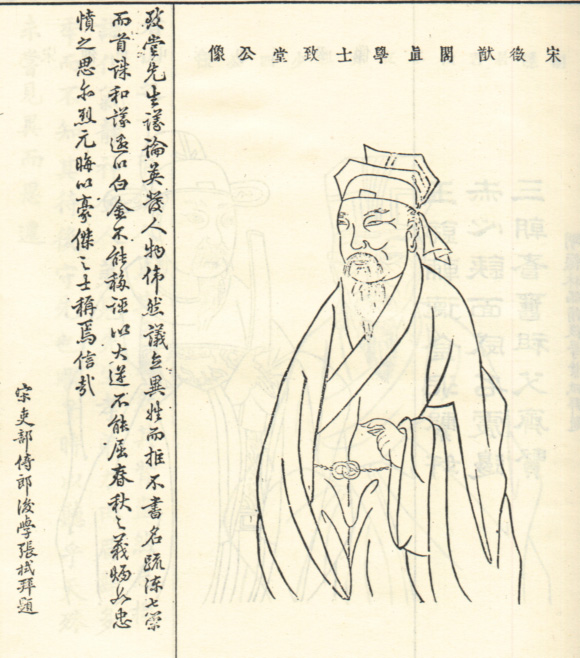 宋徵猷閣直學士致堂公像
致堂先生議論英發人物偉然議立異姓而拒不書名疏陳七策
而首誅和議遺以白金不能移誣以大逆不能屈春秋之義炳如忠
憤之思亦烈元晦以豪傑之士稱焉信哉
宋吏部侍郎後學張栻拜題